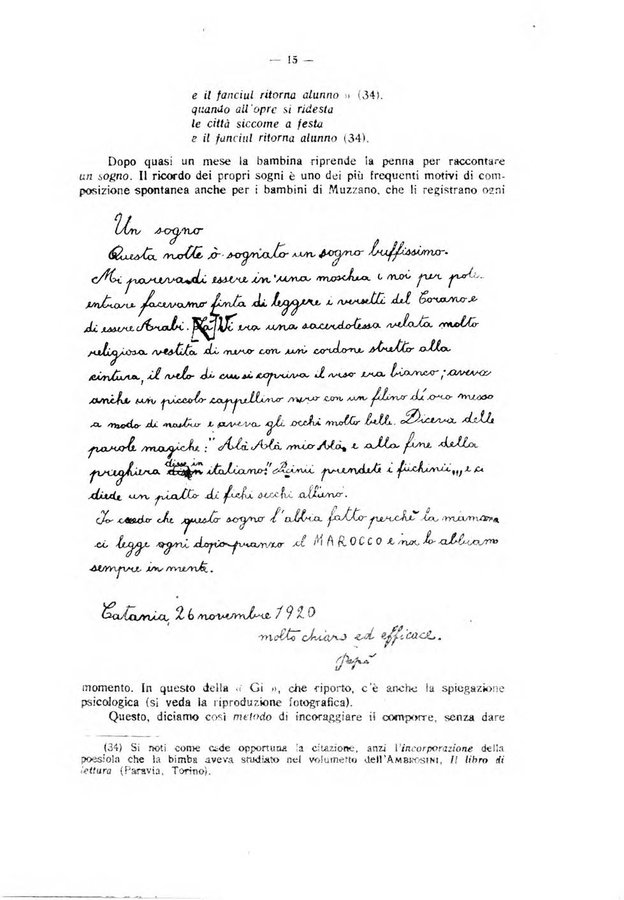 — 15 —
e il fanciul ritorna alunno » (34).
quando all'opre si ridesta
le città siccome a festa
e il fanciul ritorna alunno (34).
Dopo quasi un mese la bambina riprende la penna per raccontare
un sogno. Il ricordo dei propri sogni è uno dei più frequenti motivi di com-
posizione spontanea anche per i bambini di Muzzano, che li registrano ogni
Un sogno
Questa notte ò sogniato un sogno buffissimo.
Mi pareva di essere in una moschia i noi per pote.
entrare facevamo finta di leggere i versetti del Corano e
di essere Arabi. Vi era una sacerdotessa velata molto
religiosa vestita di nero con un cordone stretto alla
cintura, il velo di cui si copriva il viso era bianco; aveva
anche un piccolo cappellino nero con un filino d'oro messo
a modo di nastro e aveva gli occhi molto belli. Diceva delle
parole magiche: "Alà Alà mio Alà, e alla fine della
preghiera disse in italiano: prendete i fichinii,,, e ci
diede un piatto di fichi secchi all'uno.
Io credo che questo sogno l'abbia fatto perchè la mamma
ci legge ogni dopo pranzo il MAROCCO e noi lo abbiamo
sempre in mente.
Catania, 26 novembre 1920
molto chiaro ed efficace.
Papà
momento. In questo della « Gi », che riporto, c'è anche la spiegazione
psicologica (si veda la riproduzione fotografica).
Questo, diciamo così metodo di incoraggiare il comporre, senza dare
(34) Si noti come cade opportuna la citazione, anzi l'incorporazione della
poesiola che la bimba aveva studiato nel volumetto dell'AMBROSINI, Il libro di
lettura (Paravia, Torino).